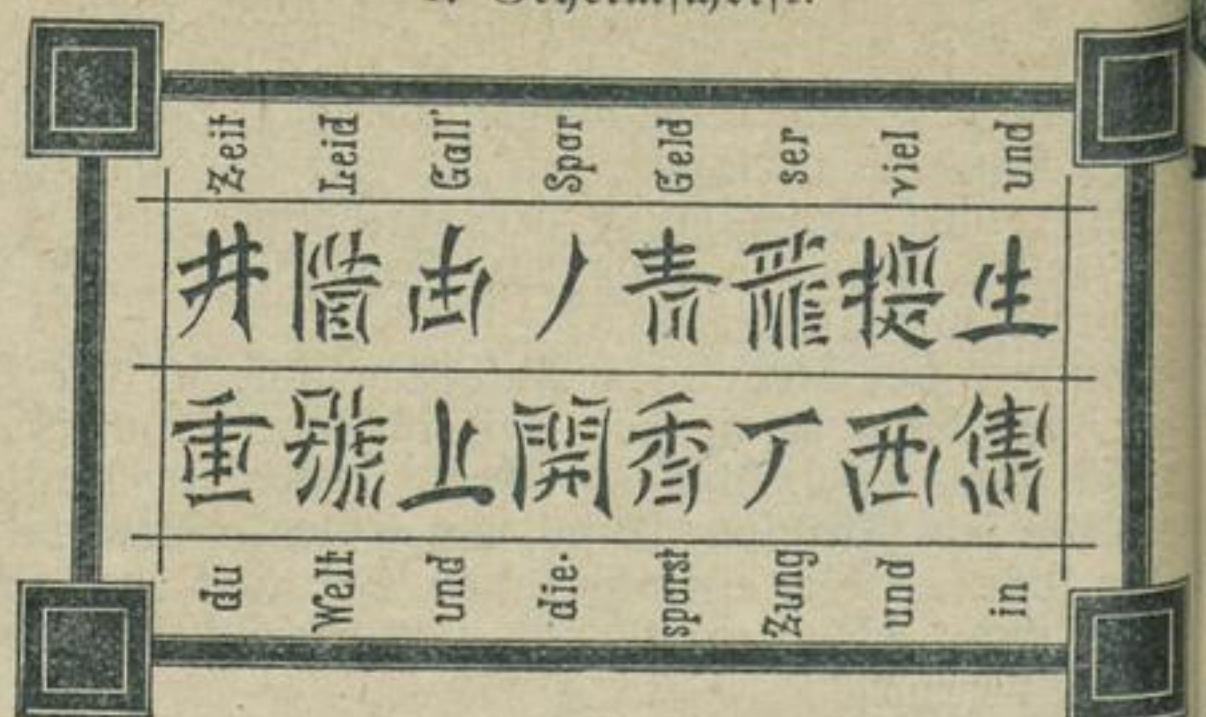 Zeit Leid Gall' Spar Geld ser viel und
井 丿 青 龍 生
重 號 上 開 香 丁 西
du Welt und die. sparst Zung und in